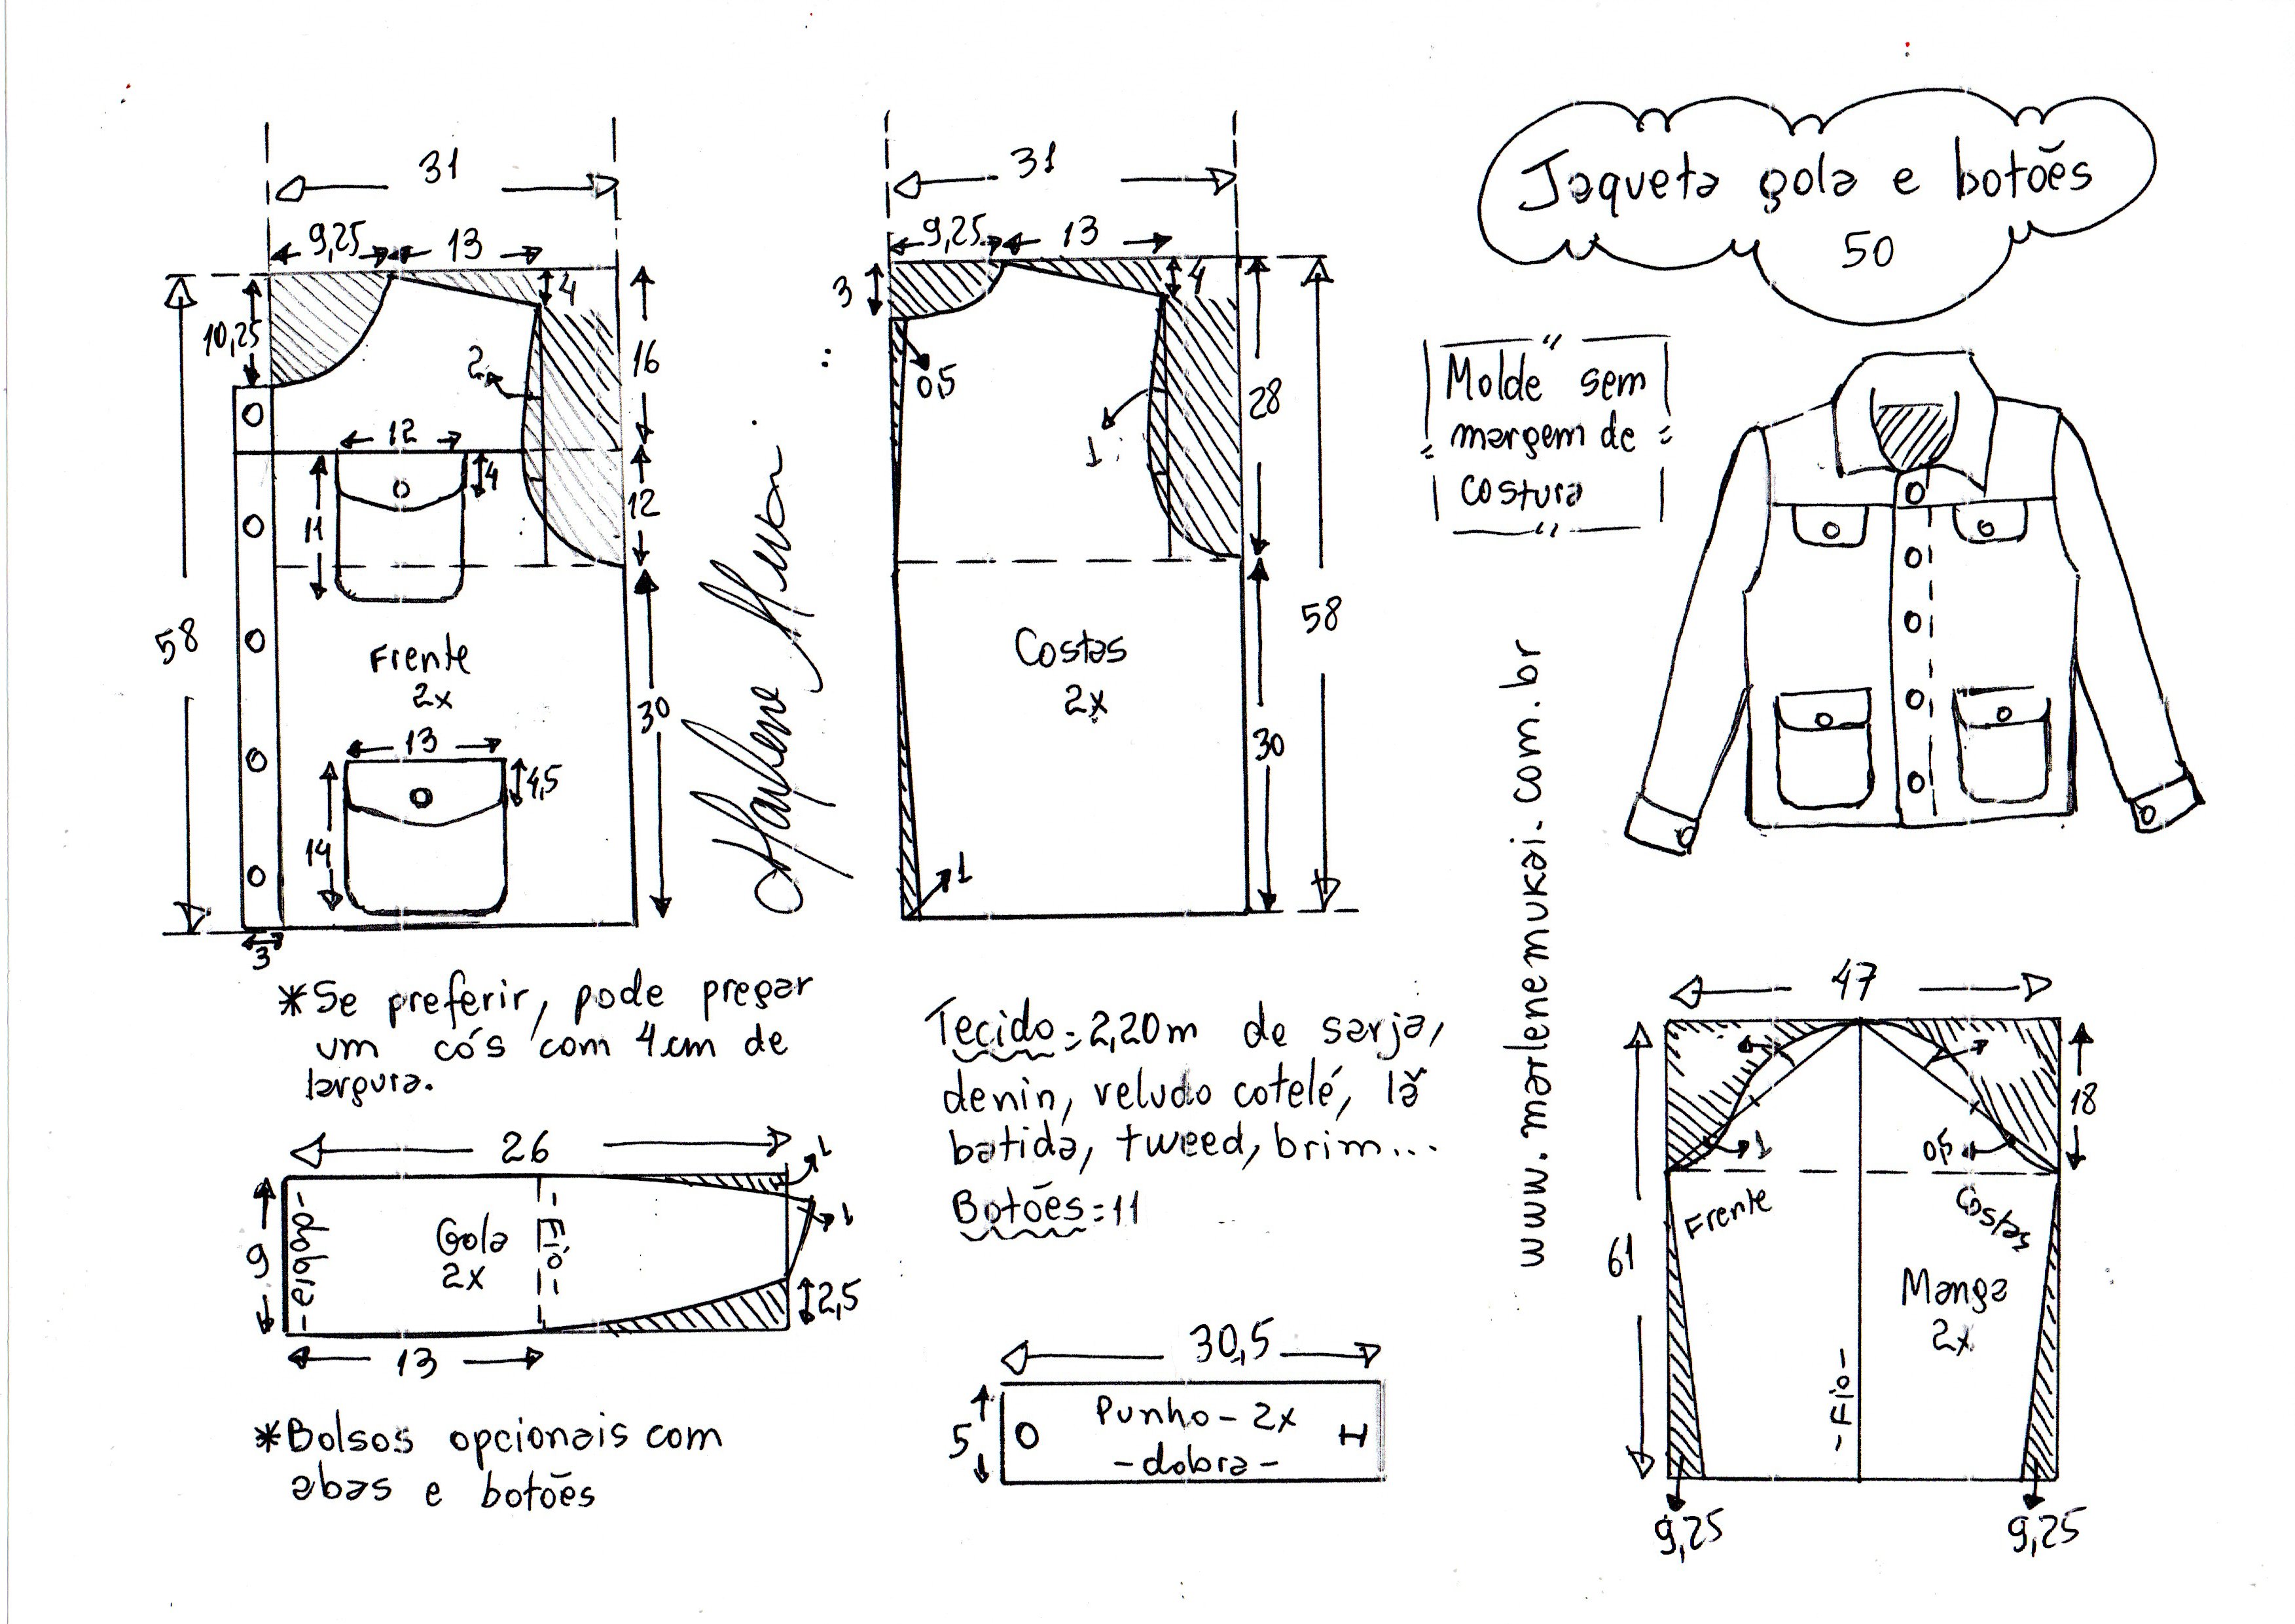 Jaqueta gola e botões
50
Molde sem
margem de
costura
31
9,25
13
4
10,25
2
16
12
4
11
12
58
Frente
2x
13
4,5
14
30
3
31
9,25
13
3
4
0,5
1
28
58
Costas
2x
30
1
Marlene Mukai
www.marlenemukai.com.br
*Se preferir, pode pregar
um cós com 4cm de
largura.
26
1
1
9
-dobra-
Gola
2x
-Fio-
2,5
13
*Bolsos opcionais com
abas e botões
Tecido=2,20m de sarja,
denin, veludo cotelé, lã
batida, tweed, brim...
Botões=11
30,5
5
Punho-2x
-dobra-
47
18
1
0,5
61
Frente
Costas
Manga
2x
-Fio-
9,25
9,25